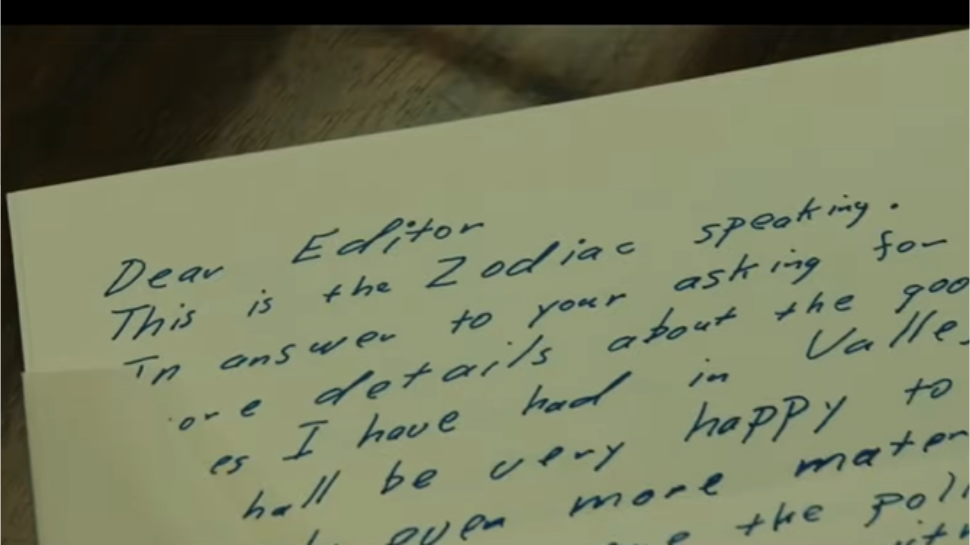 Dear Editor
This is the Zodiac speaking.
In answer to your asking for
ore details about the goo
es I have had in Valle
hall be very happy to
even more mater
e the poli